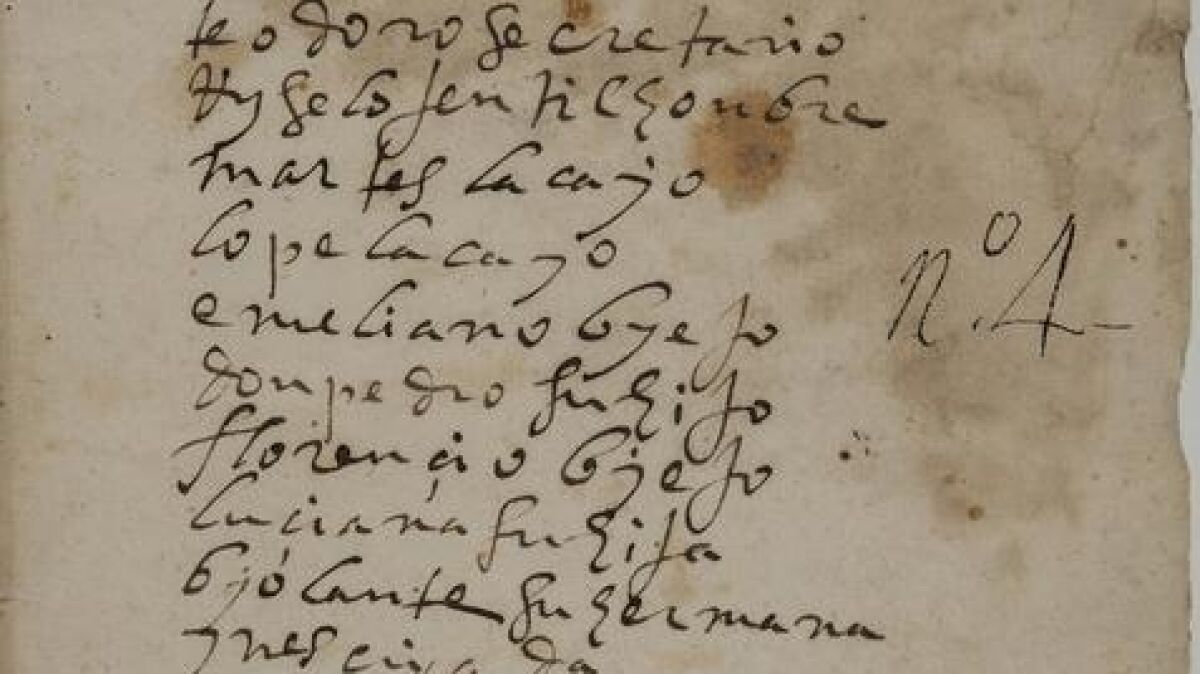 teodoro secretario
jentilhonbre
martes lacayo
lope lacayo
nº. 4
emeliano byejo
don pedro su hijo
florençio byejo
luçiana su hija
bjolante su hermana
ynes criada